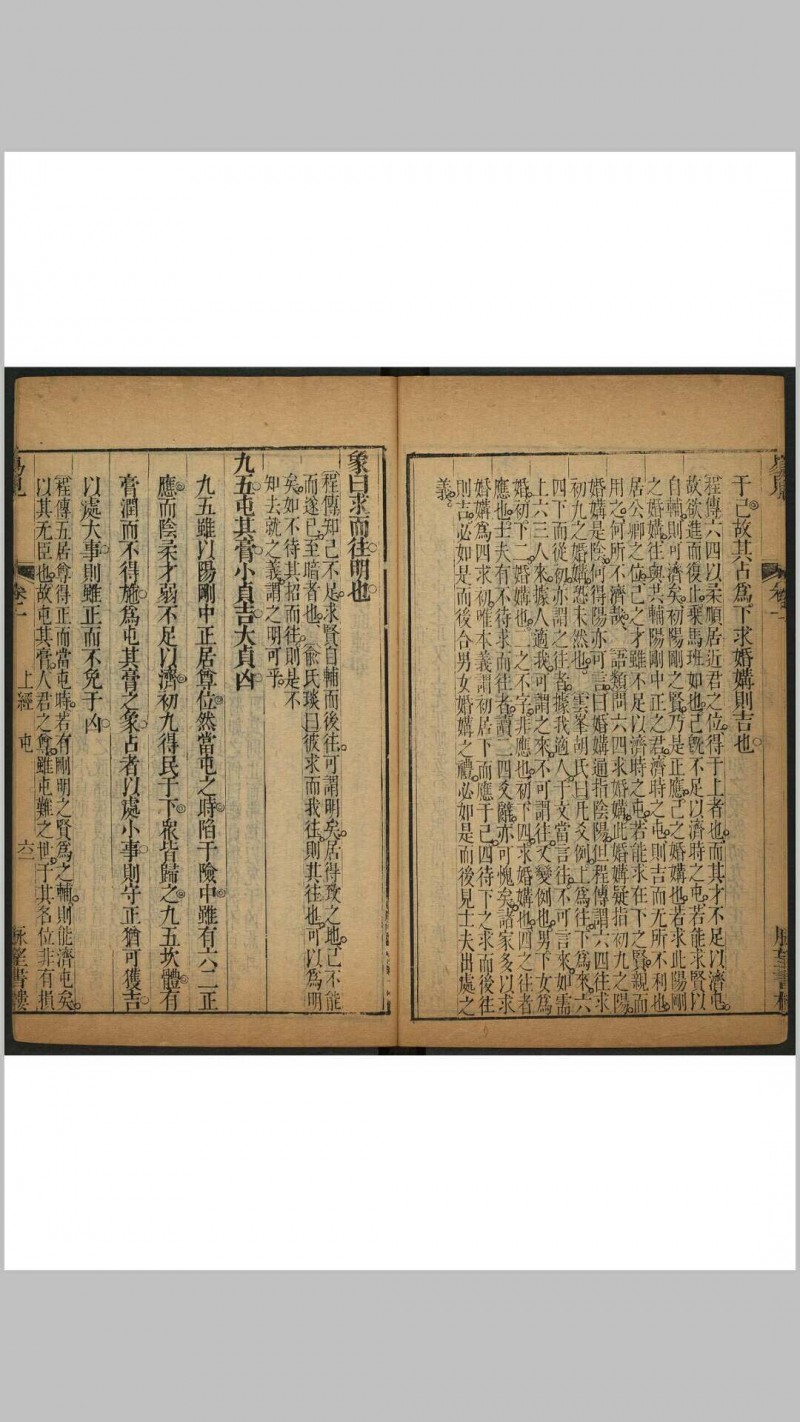 于己故其占爲下求婚媾則吉也
程傳六四以柔順居近君之位得于上者也而其才不足以濟屯
故欲進而復止乗馬班如也己旣不足以濟時之屯若能求賢以
自輔則可濟矣初陽剛之賢乃是正應己之婚媾也若求此陽剛
之婚媾往與共輔陽剛中正之君濟時之屯則吉而无所不利也
居公卿之位己之才雖不足以濟時之屯若能求在下之賢親而
用之何所不濟哉　語類問六四求婚媾此婚媾疑指初九之陽
婚媾是陰何得陽亦可言曰婚媾通指陰陽但程傳謂六四往求
初九之婚媾恐未然也　雲峯胡氏曰凡爻例上爲往下爲來六
四下而從初亦謂之往者據我適人于文當言往不可言來如需
上六三人來據人適我可謂之來不可謂往又變例也男下女爲
婚初下二婚媾也二之不字非應也初下四求婚媾也四之往者
應也士夫有不待求而往者讀二四爻辭亦可愧矣諸家多以求
婚媾爲四求初唯本義謂初居下而應于己四待下之求而後往
則吉必如是而後合男女婚媾之禮必如是而後見士夫出處之
義
象曰求而往明也
程傳知己不足求賢自輔而後往可謂明矣居得致之地己不能
而遂已至暗者也　俞氏琰曰彼求而我往則其往也可以爲明
矣如不待其招而往則是不
知去就之義謂之明可乎
九五屯其膏小貞吉大貞凶
九五雖以陽剛中正居尊位然當屯之時陷于險中雖有六二正
應而陰柔才弱不足以濟初九得民于下衆皆歸之九五坎體有
膏潤而不得施爲屯其膏之象占者以處小事則守正猶可獲吉
以處大事則雖正而不免于凶
程傳五居尊得正而當屯時若有剛明之賢爲之輔則能濟屯矣
以其无臣也故屯其膏人君之尊雖屯難之世于其名位非有損
卷二　上經　屯